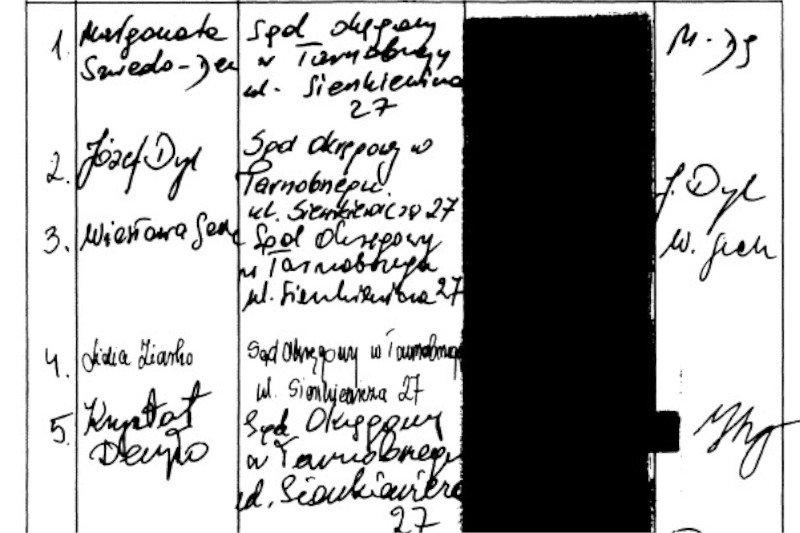 1. Małgorzata Sąd Okręgowy M.
w Tarnobrzegu
ul. Sienkiewicza
27
2. Józef Dyl Sąd Okręgowy w J. Dyl
Tarnobrzegu.
ul. Sienkiewicza 27
3. Wiesława Sąd Okręgowy W.
w Tarnobrzegu
ul. Sienkiewicza 27
4. Lidia Ziarko Sąd Okręgowy w Tarnobrzegu
ul. Sienkiewicza 27
5. Krzysztof Sąd Okręgowy
w Tarnobrzegu
ul. Sienkiewicza
27